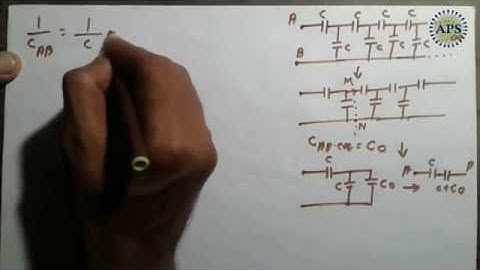 1/C_AB = 1/C
A C C C C
C C C C
B
APS
M
N
C_AB = C_MN = C_0
C
C C_0
A C B
C+C_0